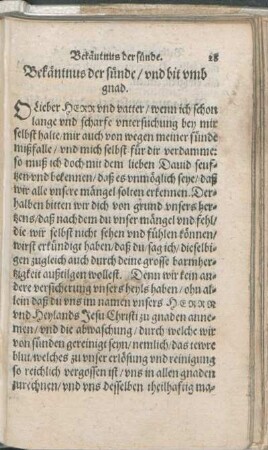 Bekäntnus der sünde. 28
Bekäntnus der sünde / vnd bit vmb
gnad.
O Lieber HERR vnd vatter / wenn ich schon
lange vnd scharfe vntersuchung bey mir
selbst halte / mir auch von wegen meiner sünde
mißfalle / vnd mich selbst für dir verdamme:
so muß ich doch mit dem lieben Dauid seuf-
tzen vnd bekennen / daß es vnmöglich seye / daß
wir alle vnsere mängel solten erkennen. Der-
halben bitten wir dich von grund vnsers her-
tzens / daß nach dem du vnser mängel vnd fehl /
die wir selbst nicht sehen vnd fühlen können /
wirst erkündigt haben / daß du / sag ich / dieselbi-
gen zugleich auch durch deine grosse barmher-
tzigkeit außtilgen wollest. Denn wir kein an-
dere versicherung vnsers heyls haben / ohn al-
lein daß du vns im namen vnsers HERRN
vnd Heylands Jesu Christi zu gnaden anne-
men / vnd die abwaschung / durch welche wir
von sünden gereinigt seyn / nemlich / das tewre
blut / welches zu vnser erlösung vnd reinigung
so reichlich vergossen ist / vns in allen gnaden
zurechnen / vnd vns desselben theilhaftig ma-